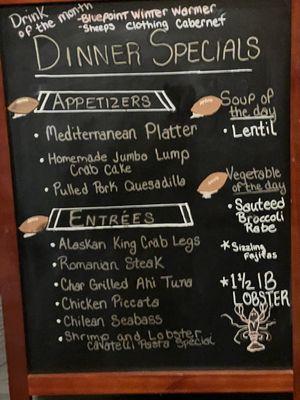 Drink
of the month
-Bluepoint Winter Warmer
-Sheeps Clothing Cabernet
DINNER SPECIALS
APPETIZERS
• Mediterranean Platter
• Homemade Jumbo Lump
Crab Cake
• Pulled Pork Quesadilla
ENTRÉES
• Alaskan King Crab Legs
• Romanian Steak
• Char Grilled Ahi Tuna
• Chicken Piccata
• Chilean Seabass
• Shrimp and Lobster
Cavatelli Pasta Special
Soup of
the day
• Lentil
Vegetable
of the day
• Sauteed
Broccoli
Rabe
*Sizzling
Fajitas
*1 1/2 lB
LOBSTER